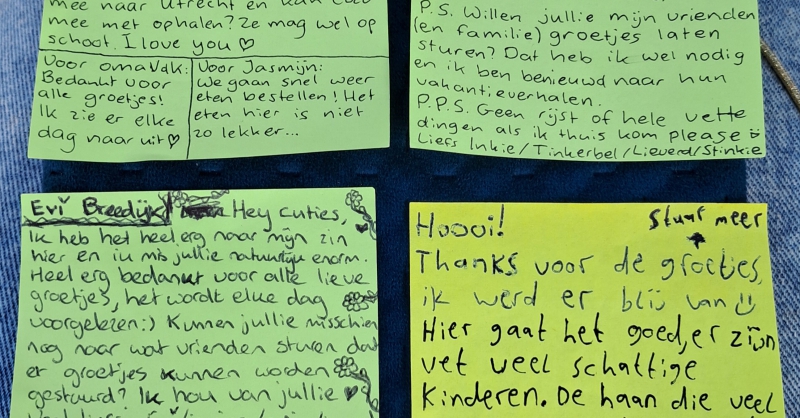 mee naar Utrecht en kan
mee met ophalen? Ze mag wel op
schoot. I love you ♡
Voor omaVdK:
Bedankt voor
alle groetjes!
Ik zie er elke
dag naar uit♡
Voor Jasmijn:
We gaan snel weer
eten bestellen! Het
eten hier is niet
zo lekker...
P.S. Willen jullie mijn vrienden
(en familie) groetjes laten
sturen? Dat heb ik wel nodig
en ik ben benieuwd naar hun
vakantieverhalen.
P.P.S. Geen rijst of hele vette
dingen als ik thuis kom please
Liefs Inkie/Tinkerbel/Lieverd/Stinkie
Evi Breedijk Hey cuties,
Ik heb het heel erg naar mijn zin
hier en ik mis jullie natuurlijk enorm.
Heel erg bedankt voor alle lieve
groetjes, het wordt elke dag
voorgelezen:) Kunnen jullie misschien
nog naar wat vrienden sturen dat
er groetjes kunnen worden
gestuurd? Ik hou van jullie ♡
Hoooi!
Stuur meer
Thanks voor de groetjes,
ik werd er blij van
Hier gaat het goed, er zijn
vet veel schattige
kinderen. De haan die veel